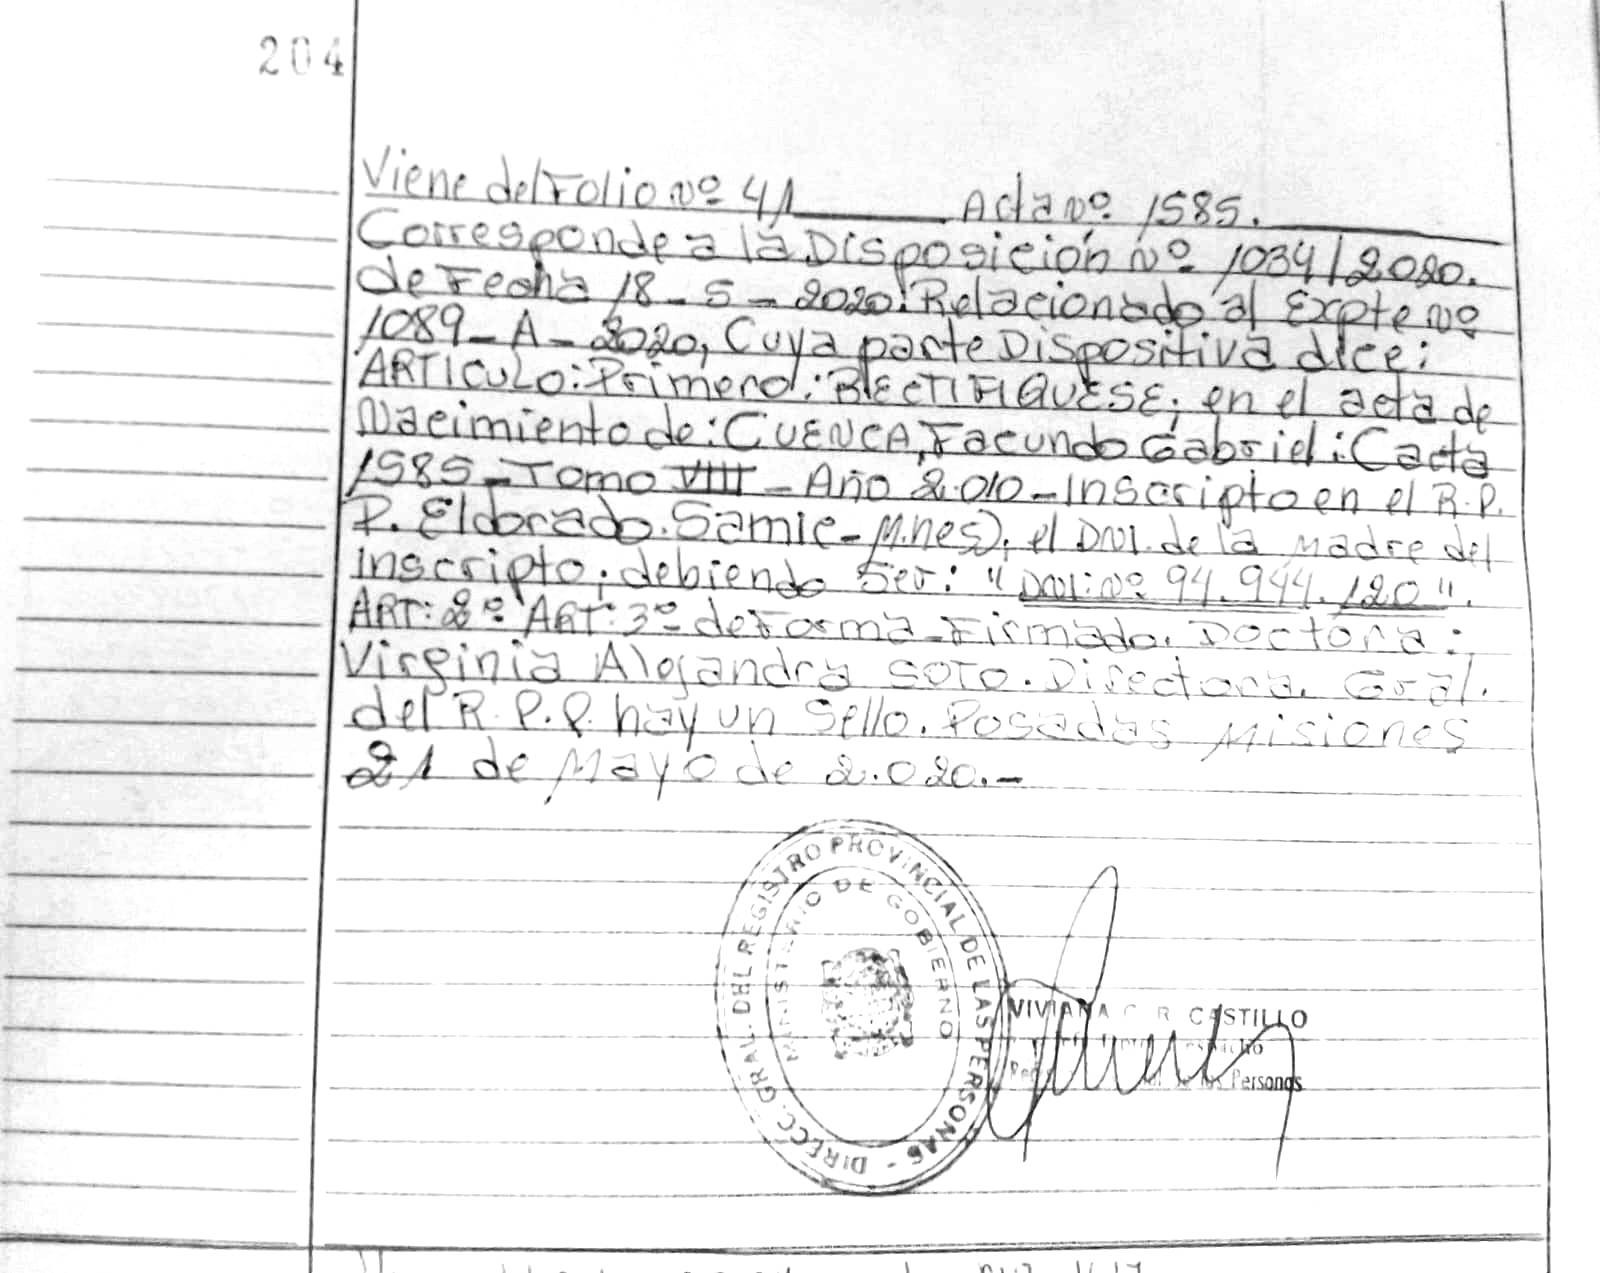 204
Viene del Folio nº 41 Acta nº 1585.
Corresponde a la Disposición nº 1034/2020.
de Fecha 18-5-2020. Relacionado al Expte nº
1089-A-2020, Cuya parte Dispositiva dice:
ARTICULO: Primero: RECTIFIQUESE, en el acta de
Nacimiento de: CUENCA, Facundo Gabriel: (acta
1585-Tomo VIII-Año 2.010-Inscripto en el R.P.
P. Eldorado. Samic-M.nes), el DNI. de la madre del
Inscripto, debiendo ser: "DNI: nº 94.944.120".
ART: 2º ART: 3º de Forma-Firmado. Doctora:
Virginia Alejandra SOTO. Directora. Gral.
del R.P.P. hay un sello. Posadas Misiones
21 de Mayo de 2.020.-
DIRECC. GRAL. DEL REGISTRO PROVINCIAL DE LAS PERSONAS -
MINISTERIO DE GOBIERNO
VIVIANA C. R. CASTILLO
Personas